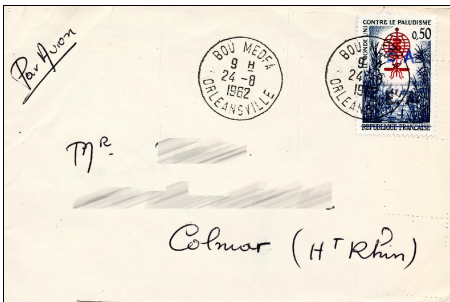 Par Avion
BOU MEDFA
9 H
24-8
1962
ORLEANSVILLE
BOU
9
24-8
196
ORLEANSVILLE
CONTRE LE PALUDISME
0,50
EA
REPUBLIQUE FRANÇAISE
MR
Colmar (HT Rhin)